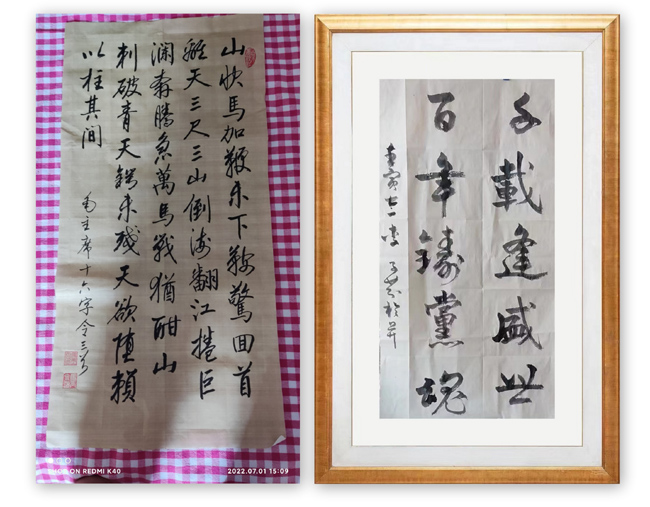 山快馬加鞭未下鞍驚回首
離天三尺三山倒海翻江捲巨
瀾奔騰急萬馬戰猶酣山
刺破青天鍔未殘天欲墮賴
以柱其間
毛主席十六字令三首
SHOT ON REDMI K40
2022.07.01 15:09
千載逢盛世
百年鑄黨魂
壬寅